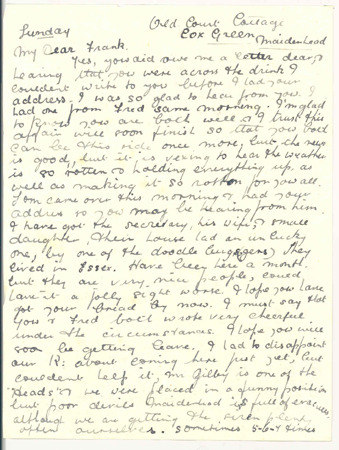 Old Court Cottage
Sunday Cox Green
Maidenhead
My Dear Frank.
Yes, you did owe me a letter dear,
hearing that you were across the drink I
couldent write to you before I had your
address. I was so glad to hear from you. I
had one from Fred same morning. I'm glad
to know you are both well & I trust this
affair will soon finish so that you both
can be this side once more, but the news
is good, but it is vexing to hear the weather
is so rotten & holding everything up, as
well as making it so rotten for you all.
Tom came over this morning & had your
address so you may be hearing from him.
I have got the secretary, his wife, & small
daughter, their house had an unlucky
one, by one of the doodle they
lived in Essex. Have been here a month
but they are very nice people, could
have it a jolly sight worse. I hope you have
got your by now. I must say that
you & Fred both wrote very cheerful
under the circumstances. I hope you will
soon be getting leave. I had to disappoint
our R: about coming here just yet, but
couldent help it, Mr Gilby is one of the
"Heads" & we were placed in a funny position
but poor devils Maidenhead is full of evacuees,
although we are getting the siren
often ourselves. sometimes 5-6-7 times